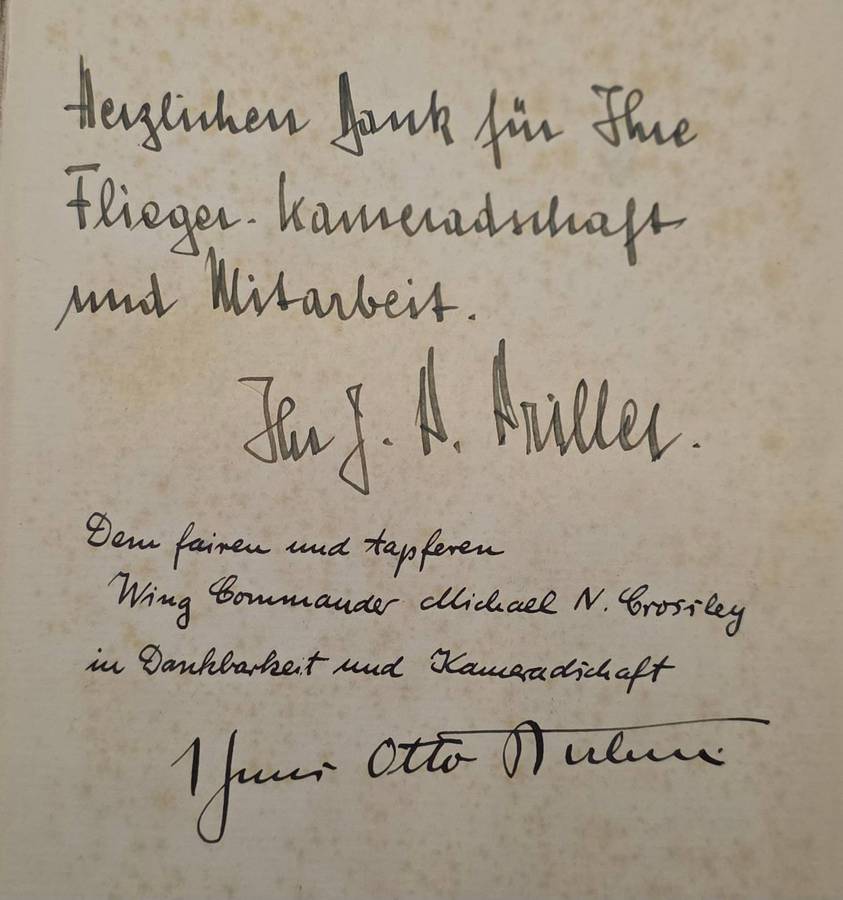 Herzlichen Dank für Ihre
Flieger-Kameradschaft
und Mitarbeit.
Ihr J. A. Priller.
Dem fairen und tapferen
Wing Commander Michael N. Crossley
in Dankbarkeit und Kameradschaft
Hans Otto